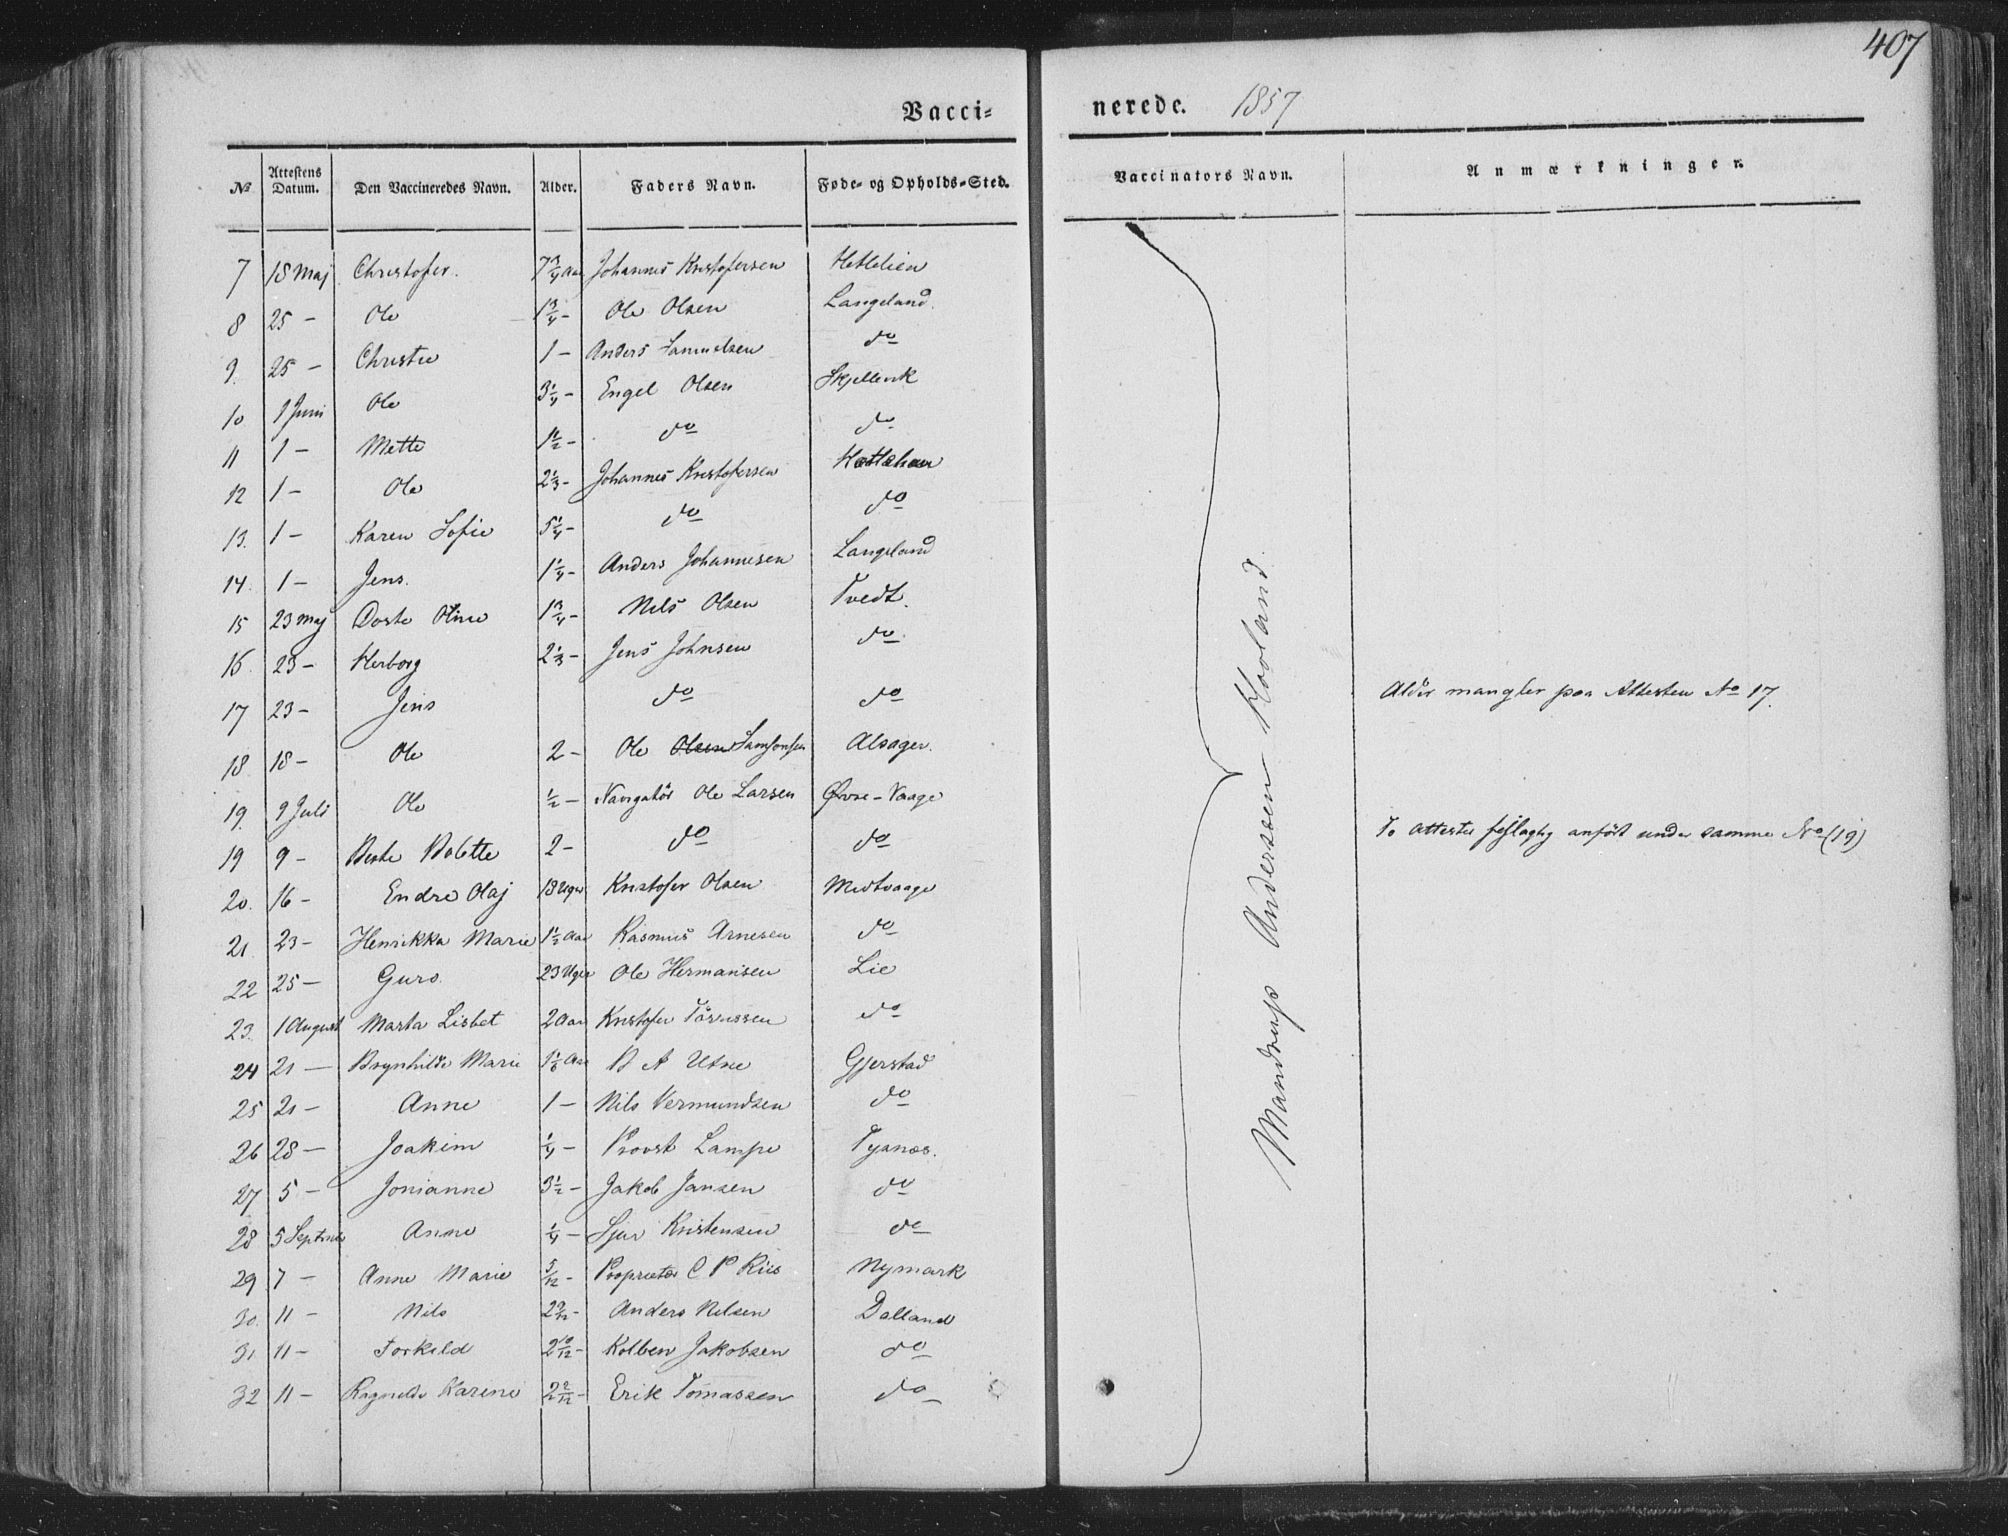 407
Vacci= nerede. 1857
No Attestens Datum. Den Vaccineredes Navn. Alder. Faders Navn. Føde- og Opholds-Sted. Vaccinators Navn. Anmærkninger.
7 18 Maj Christofer. 7 3/4 Aar Johannes Kristofersen
8 25 - Ole 1 3/4 - Ole Olsen Langeland.
9. 25 - Christie 1 - Anders Samuelsen do
10 1 Juni Ole 3 1/4 - Engel Olsen
11 1 - Mette 1 1/2 - do do
12 1 - Ole 2 1/3 - Johannes Kristofersen
13. 1 - Karen Sofie 5 1/4 - do do
14. 1 - Jens. 1 1/4 - Anders Johannesen Langeland
15 23 Maj Dorte Oline 1 3/4 - Nils Olsen Tvedt.
16. 23 - Herborg 2 1/3 - Jens Johnsen do
17 23 - Jens do do Alder mangler paa Attesten No 17.
18 18 - Ole 2 - Ole Olsen Samsonsen Alsager.
19. 9 Juli Ole 1/2 - Navigatör Ole Larsen Øvre-Vaage
19 9 - Berte Bolette 2 - do do To attester anfört under samme No (19)
20. 16 - Endre Olaj 13 Uger Kristofer Olsen Medtvaage
21 23 - Henrikka Marie 1 1/2 Aar Rasmus Arnesen do
22 25 - Guro. 23 Uger Ole Hermansen Lie
23. 1 August Marta Lisbet 2 Aar Kristofer do
24 21 - Brynhilde Marie 1 1/6 Aar B A Utne Gjerstad
25 21 - Anne 1 - Nils Vermundsen do
26 28 - Joakim 1/4 - Provst Lampe Tysnæs.
27 5 - Jonianne 3 1/2 - Jakob Jansen do
28 5 Septmbr Anne 1/4 - Sjur Kristensen do
29 7 - Anne Marie 5/12 - Proprietær C P Riis Nymark
30. 11 - Nils 2 9/12 - Anders Nilsen Dalland
31 11 - Torkild 2 10/12 - Kolben Jakobsen do
32 11 - Ragnilde Karine 2 2/12 - Erik Tomassen do
Mandrup Anderssen Hovland.